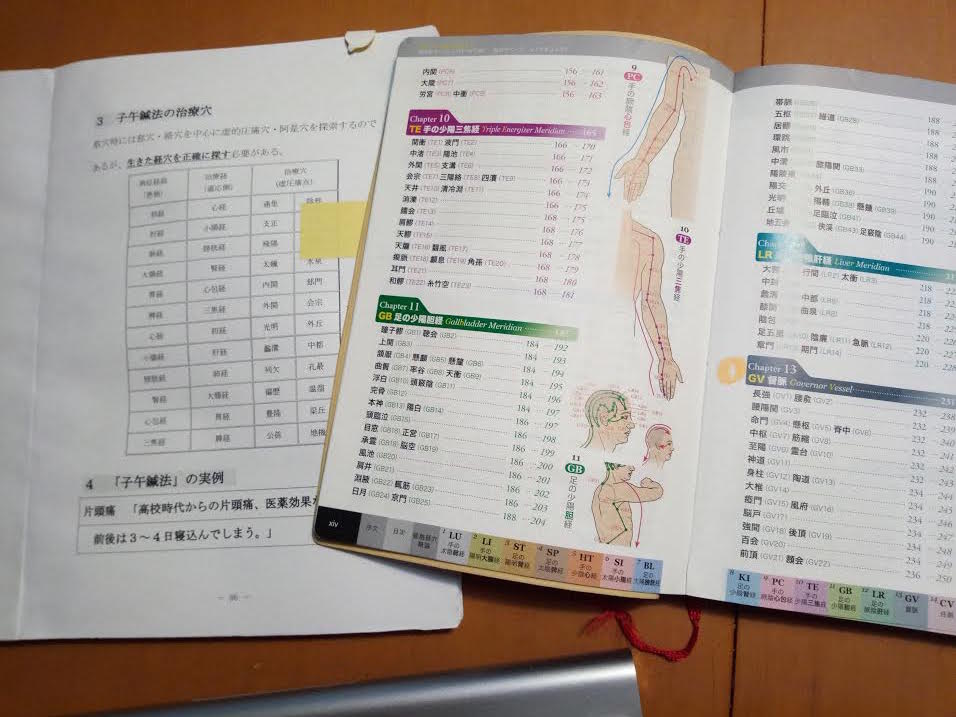 3 子午鍼法の治療穴
あるが、生きた経穴を正確に探す必要がある。
治療経
治療穴
(虚圧痛点)
心経 通里
小腸経 支正
腎経 太鍾
心包経 内関 郄門
三焦経 外関 会宗
胆経 光明 外丘
肝経 蠡溝 中都
肺経 孔最
大腸経 偏歴 温溜
心包経 胃経 豊隆 梁丘
三焦経 脾経 公孫 地機
4 「子午鍼法」の実例
片頭痛 「高校時代からの片頭痛、医薬効果
前後は3~4日寝込んでしまう。」
内関 (PC6) 156 161
大陵 (PC7) 156 162
労宮 (PC8) 中衝 (PC9) 156 163
Chapter 10
TE 手の少陽三焦経 Triple Energizer Meridian 165
関衝 (TE1) 液門 (TE2) 166 170
中渚 (TE3) 陽池 (TE4) 166 171
外関 (TE5) 支溝 (TE6) 166 172
会宗 (TE7) 三陽絡 (TE8) 四瀆 (TE9) 166 173
天井 (TE10) 清冷淵 (TE11) 166 174
消濼 (TE12) 168 175
臑会 (TE13) 168 175
肩髎 (TE14) 168 176
天髎 (TE15) 168 177
天牖 (TE16) 翳風 (TE17) 168 178
瘈脈 (TE18) 顱息 (TE19) 角孫 (TE20) 168 179
耳門 (TE21) 168 180
和髎 (TE22) 糸竹空 (TE23) 168 181
Chapter 11
GB 足の少陽胆経 Gallbladder Meridian
瞳子髎 (GB1) 聴会 (GB2) 184 192
上関 (GB3) 184 193
頷厭 (GB4) 懸顱 (GB5) 懸釐 (GB6) 184 194
曲鬢 (GB7) 率谷 (GB8) 天衝 (GB9) 184 195
浮白 (GB10) 頭竅陰 (GB11) 184 196
完骨 (GB12) 184 197
本神 (GB13) 陽白 (GB14) 186 197
頭臨泣 (GB15) 186 198
目窓 (GB16) 正営 (GB17) 186 199
承霊 (GB18) 脳空 (GB19) 186 200
風池 (GB20) 186 201
肩井 (GB21) 186 202
淵腋 (GB22) 輒筋 (GB23) 186 203
日月 (GB24) 京門 (GB25) 188 204
9
PC
手の厥陰心包経
10
TE
手の少陽三焦経
11
GB
足の少陽胆経
xiv
序文
目次
1 LU 手の太陰肺経
2 LI 手の陽明大腸経
3 ST 足の陽明胃経
4 SP 足の太陰脾経
5 HT 手の少陰心経
6 SI 手の太陽小腸経
7 BL 足の太陽膀胱経
帯脈 188
五枢 維道 (GB28) 188
居髎 188
環跳
風市
中瀆 膝陽関
陽陵泉 190
陽交 外丘 (GB36) 190
光明 陽輔 懸鍾 (GB39) 190
丘墟 足臨泣 (GB41) 190
地五会 侠渓 (GB43) 足竅陰 (GB44) 190
LR 肝経 Liver Meridian
大敦 行間 (LR2) 太衝 218
中封 218
蠡溝 中都 218
膝関 曲泉 220
陰包 220
足五里 陰廉 急脈 (LR12) 220
章門 期門 (LR14) 220
Chapter 13
GV 督脈 Governor Vessel 231
長強 (GV1) 腰兪 (GV2) 232 238
腰陽関 (GV3) 232
命門 (GV4) 懸枢 (GV5) 脊中 (GV6) 232
中枢 (GV7) 筋縮 (GV8) 232
至陽 (GV9) 霊台 (GV10) 232
神道 (GV11)
身柱 (GV12) 陶道 (GV13)
大椎 (GV14) 234
瘂門 (GV15) 風府 (GV16) 234
脳戸 (GV17) 234
強間 (GV18) 後頂 (GV19) 234
百会 (GV20) 236 249
前頂 (GV21) 顖会 (GV22) 236 250
8 KI 足の少陰腎経
9 PC 手の厥陰心包経
10 TE 手の少陽三焦経
11 GB 足の少陽胆経
12 LR 足の厥陰肝経
13 GV 督脈
14 CV 任脈